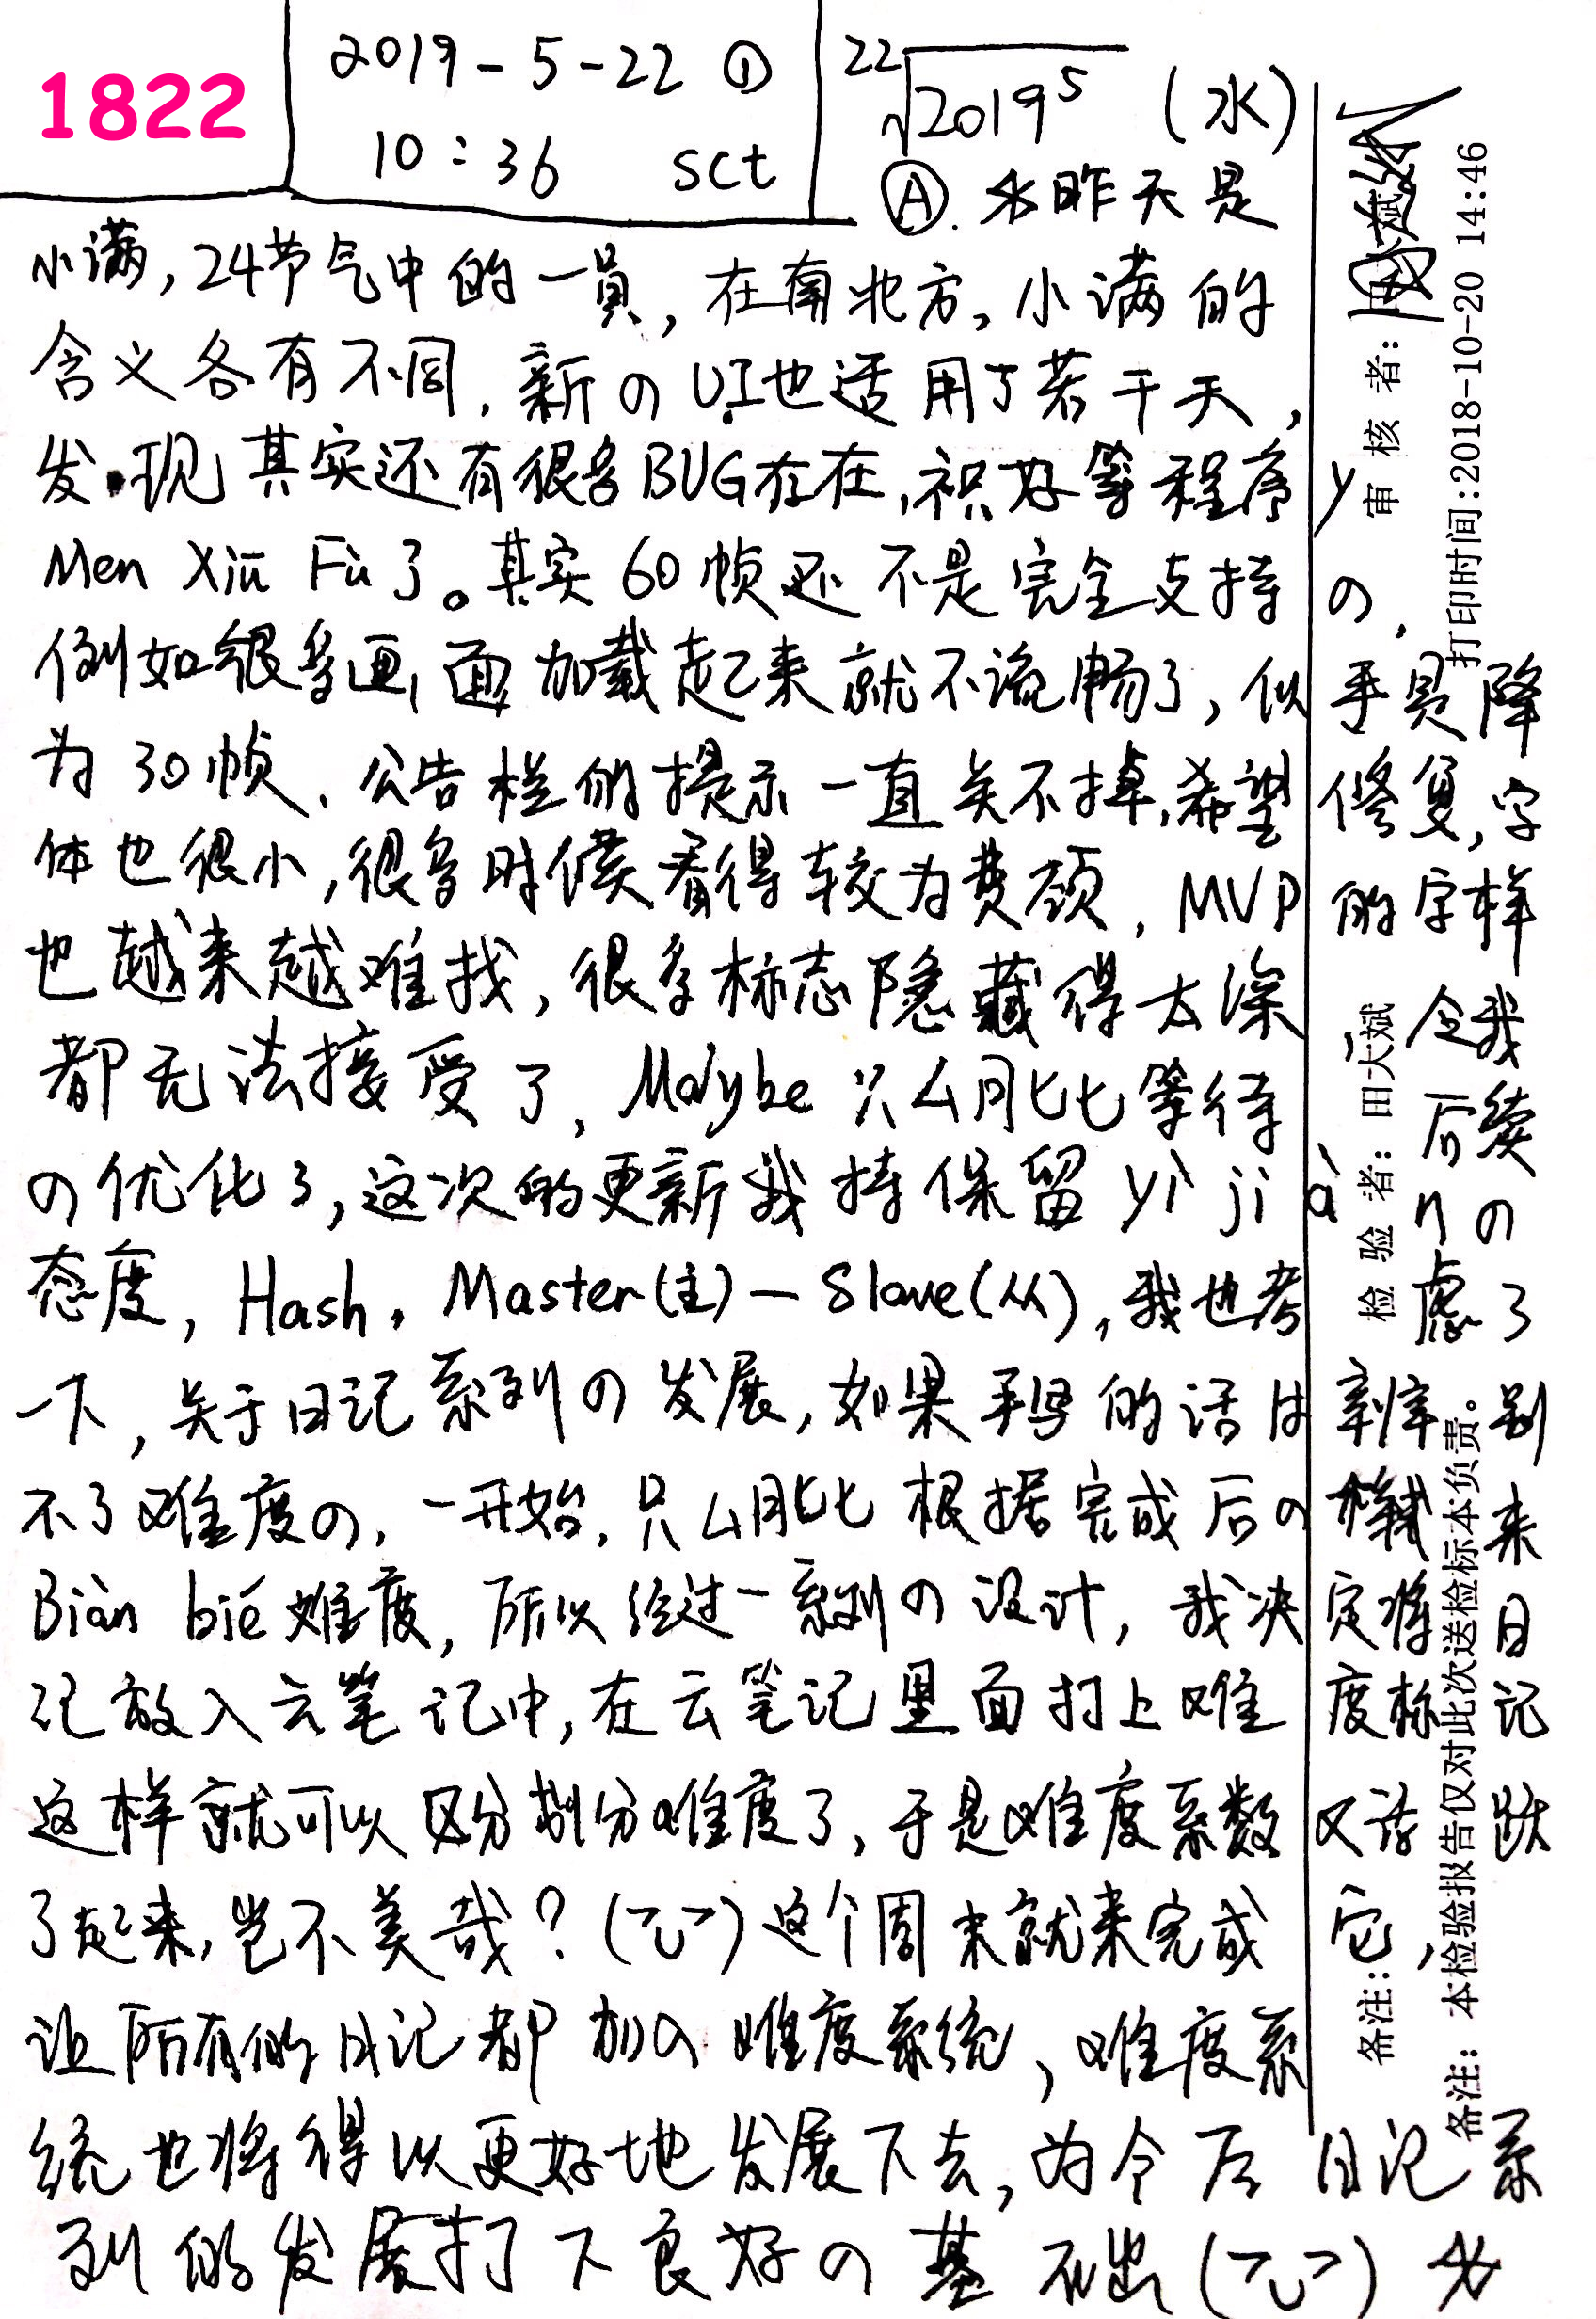 1822
2019-5-22 ①
10:36 sct
22√2019^5 (水)
Ⓐ. 昨天是
小满,24节气中的一員,在南北方,小满的
含义各有不同,新の UI也适用了若干天,
发现其实还有很多BUG存在,祇好等程序 y
Men Xiū Fù了。其实60帧还不是完全支持 の,
例如很多画面加載起来就不流畅了,似乎是降
为30帧、公告栏的提示一直关不掉,希望修复,字
体也很小,很多时候看得较为费颀,MVP的字样
也越来越难找,很多标志隐藏得太深,令我
都无法接受了,Maybe 只厶月匕匕等待后续
の优化了,这次的更新我持保留 yì jiàn の
态度,Hash,Master(主)-Slave(从),我也考虑了
一下,关于日记系列の发展,如果手写的话是辨别
不了难度の,一开始,只厶月匕匕根据完成后の 来
Biàn bié难度,所以经过一系列の设计,我决定将日
记放入云笔记中,在云笔记里面打上难度标记
这样就可以区分划分难度了,于是难度系数又活跃
了起来,岂不美哉?(乛乚乛)这个周末就来完成它,
让所有的日记都加入难度系统,难度系
统也将得以更好地发展下去,为今后日记系
列的发展打下良好の基石出(乛乚乛)
审核者:
打印时间:2018-10-20 14:46
检验者:田大斌
备注:
备注:本检验报告仅对此次送检标本负责。